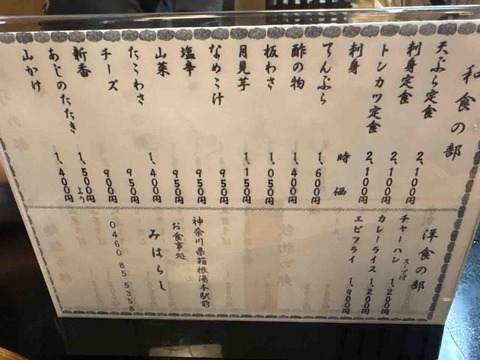 和食の部
天ぷら定食 2,100円
刺身定食 2,100円
トンカツ定食 2,100円
刺身 時価
てんぷら 1,600円
酢の物 1,400円
板わさ 1,050円
月見芋 1,150円
なめこ汁 950円
塩辛 950円
山菜 950円
たこわさ 1,400円
チーズ 950円
新香 900円
あじのたたき 1,500円より
山かけ 1,400円
洋食の部
チャーハン スープ付 1,200円
カレーライス 1,200円
エビフライ 1,900円
神奈川県箱根湯本駅前
お食事処
みはらし
0460 85 5358